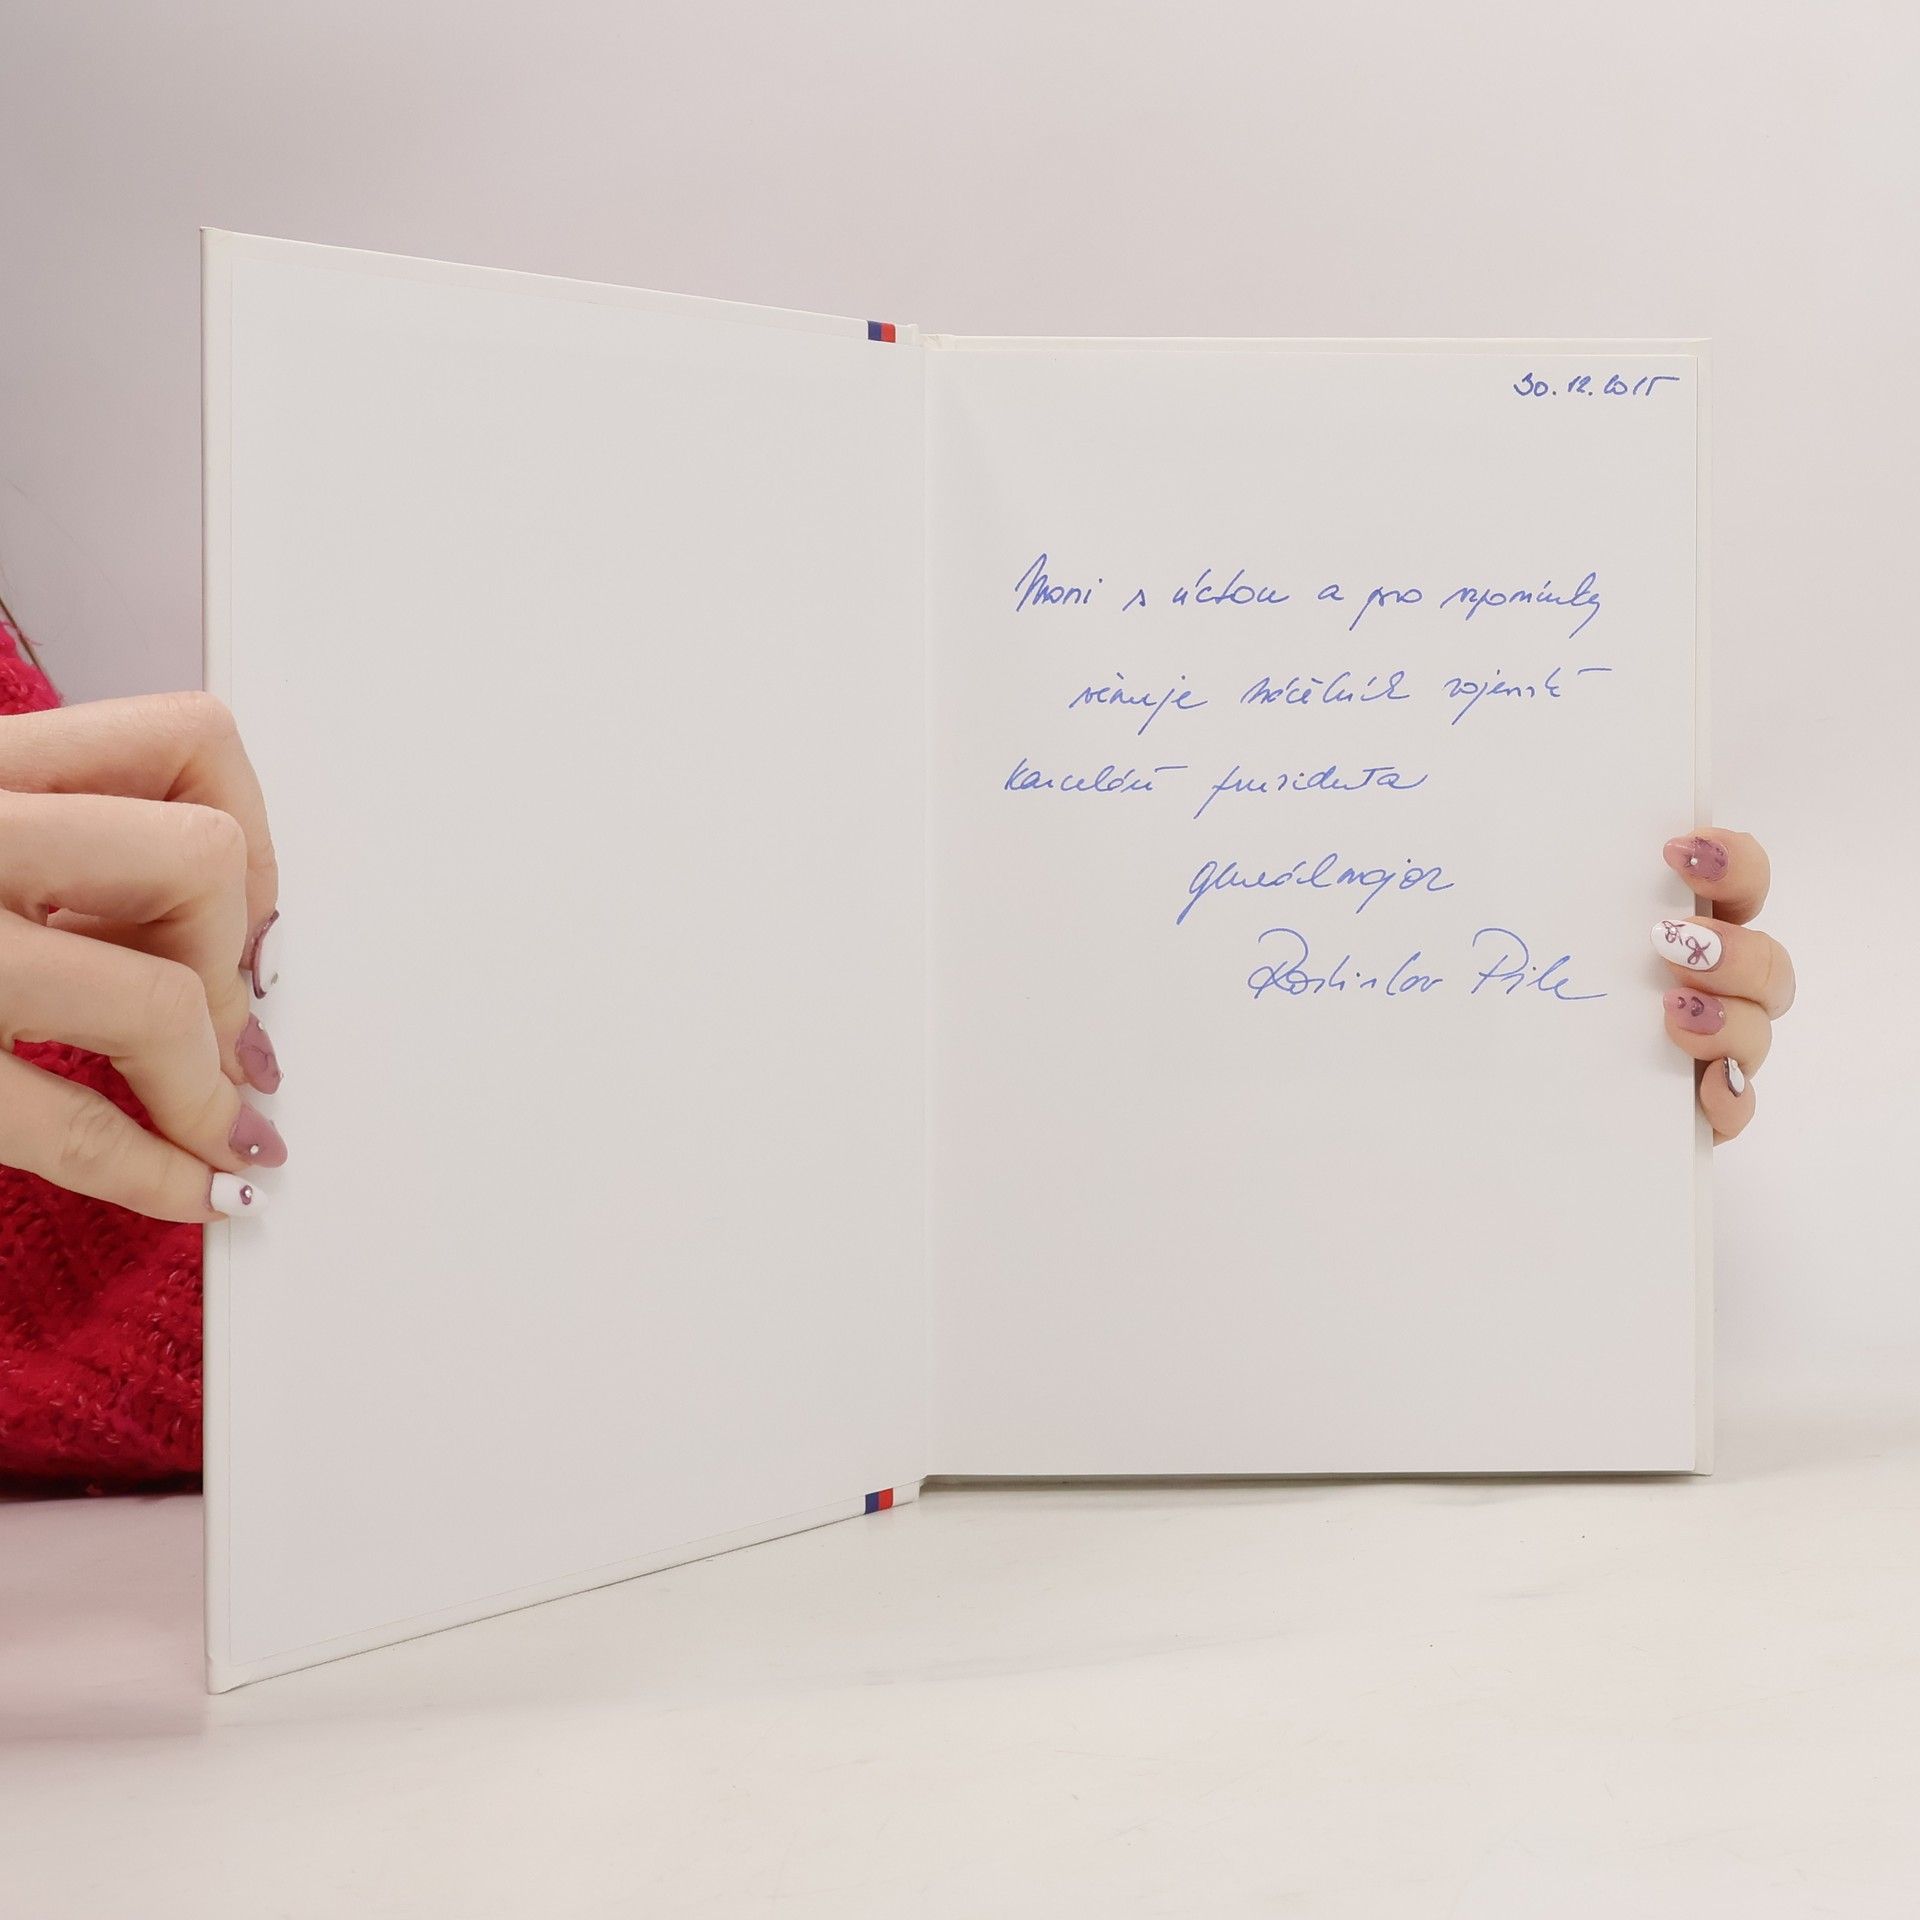 30.12.2015
Moni s úctou a pro vzpomínky
věnuje náčelník vojenské
kanceláře prezidenta
generálmajor
Rostislav Pilc